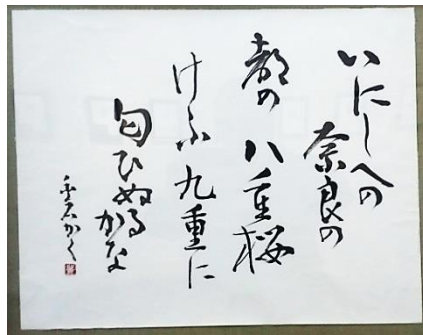 いにしへの
奈良の
都の八重桜
けふ九重に
匂ひぬる
かな
かく